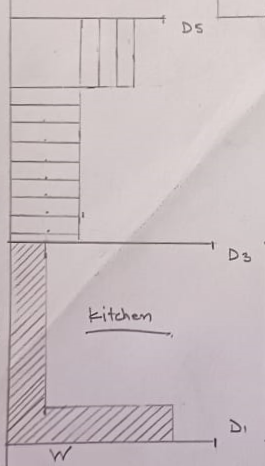 D5
D3
kitchen
D1
W